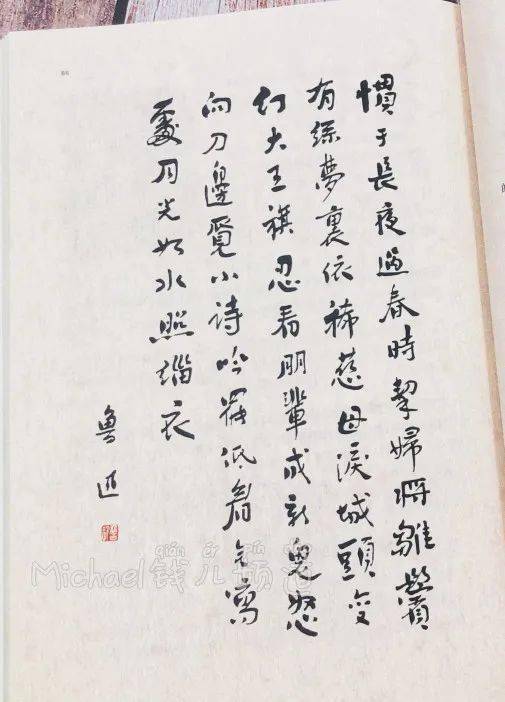 慣于長夜過春時挈婦將雛鬢
有絲夢裏依稀慈母淚城頭變
幻大王旗忍看朋輩成新鬼怒
向刀邊覓小詩吟罷低眉無寫
處月光如水照緇衣
魯迅
qián ér pín
Michael钱儿频道